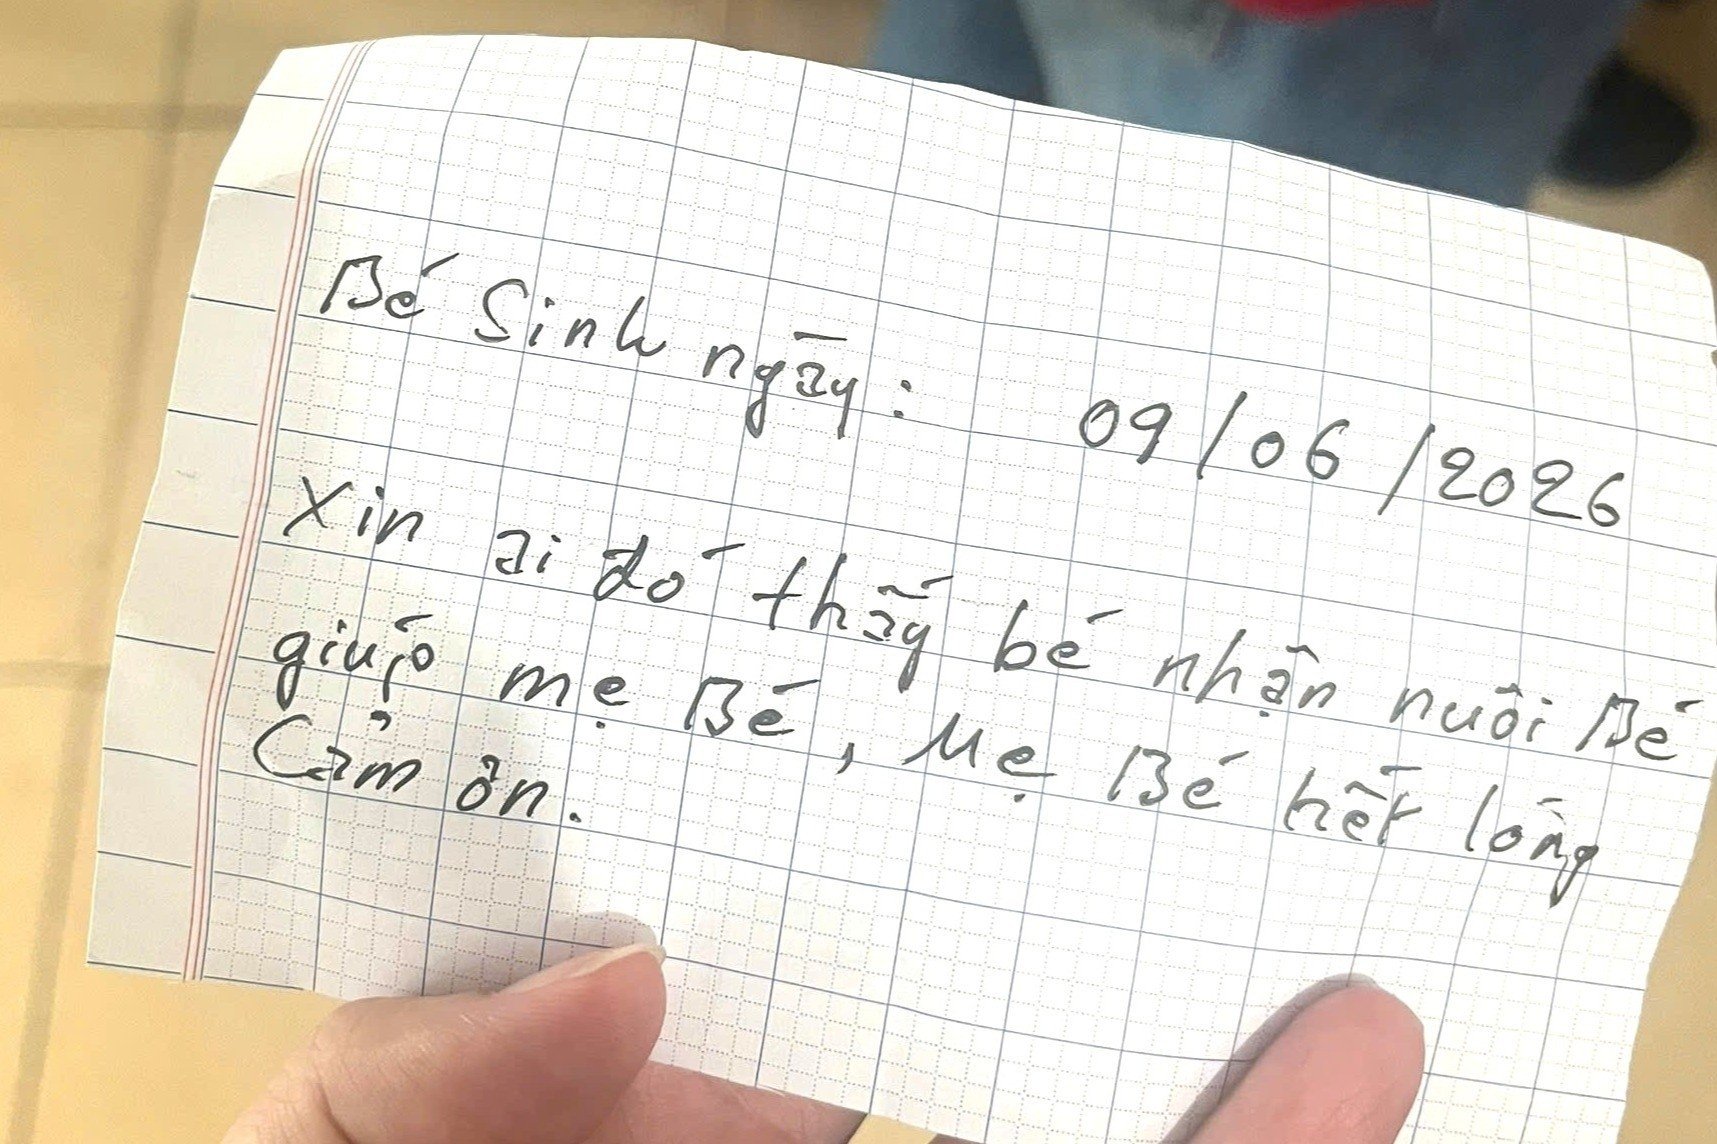 Bé Sinh ngày: 09/06/2026
Xin ai đó thấy bé nhận nuôi Bé
giúp mẹ Bé, Mẹ Bé hết lòng
Cảm ơn.